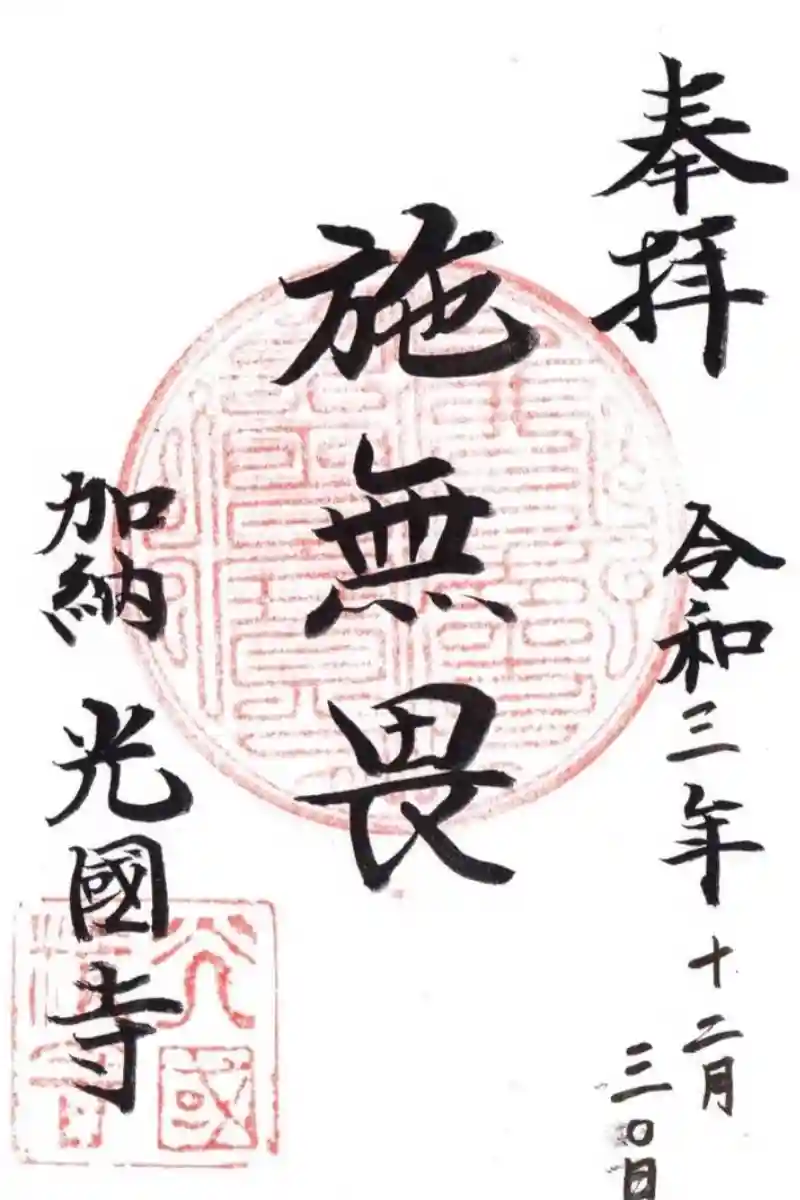 奉拝
令和三年十二月
三〇日
施無畏
加納
光國寺